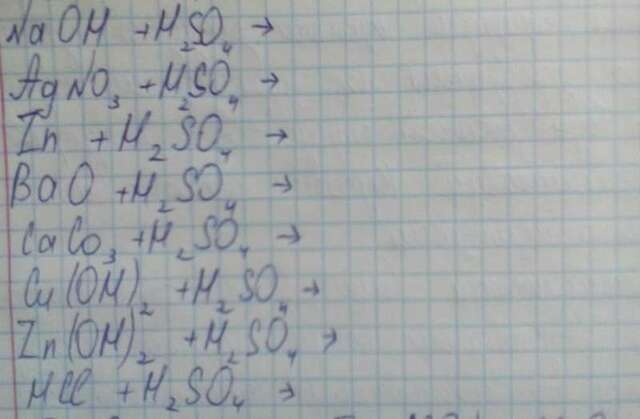 NaOH + H₂SO₄ →
AgNO₃ + H₂SO₄ →
Zn + H₂SO₄ →
BaO + H₂SO₄ →
CaCo₃ + H₂SO₄ →
Cu(OH)₂ + H₂SO₄ →
Zn(OH)₂ + H₂SO₄ →
HCl + H₂SO₄ →